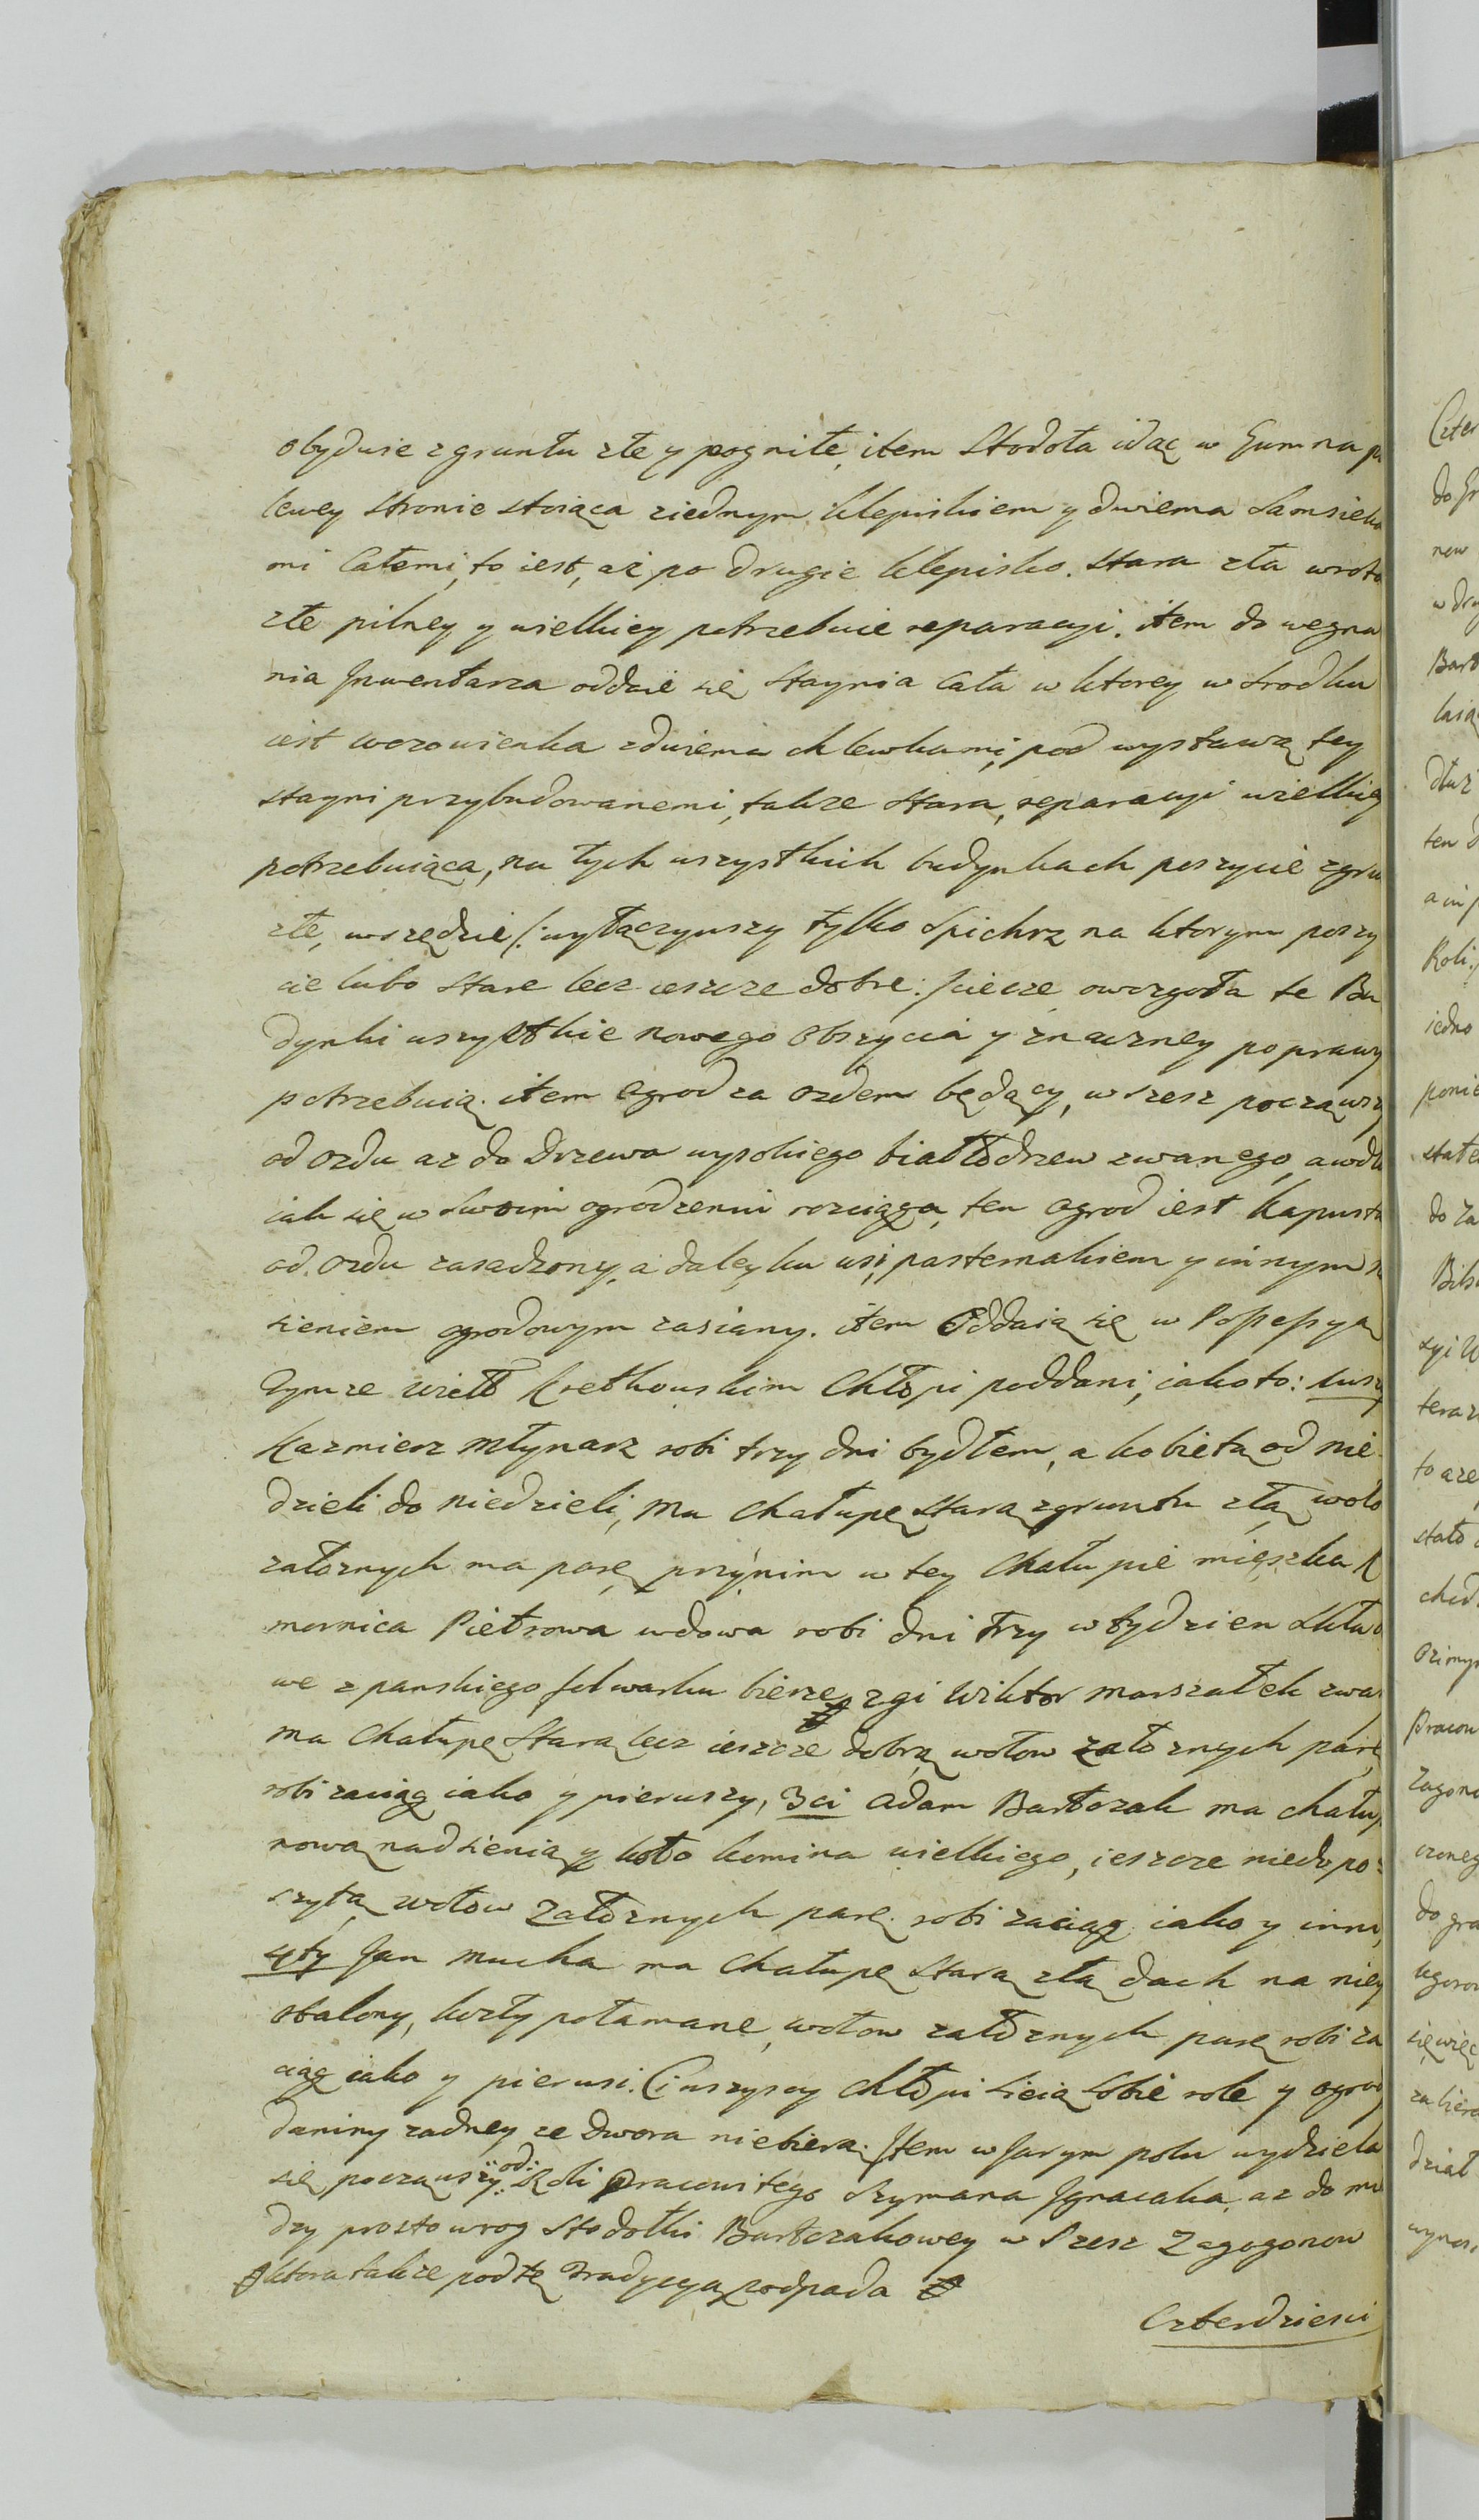 obydwie z gruntu złe y pogniłe, item Stodoła idąc w Gumna p
lewey stronie stoiąca ziednym klepiskiem y dwiema Samsieka
mi Całemi, to iest, aż po drugie klepisko. stara zła wrota
złe pilney y wielkiey potrzebuie reparacyi. item do wegna
nia Jnwentarza oddaie się Staynia Cała w ktorey w srodku
iest wozowienka zdwiema chlewkami, pod wystawą tey
stayni przybudowanemi, także stara, reparacyi wielkiey
potrzebuiąca, na tych wszystkich budynkach poszycie zgru
złe, wszędzie /: wyłączywszy tylko Spichrz na ktorym poszy
cie lubo stare lecz ieszcze dobre :/ owozgoła te Bu
dynki wszystkie nowego obszycia y znaczney poprawy
potrzebuią. item ogrod za ozdem będący, wszesz począwszy
od ozdu az do Drzewa wysokiego białłodrzew zwanego, awdłu
iak się w swoim ogrodzeniu rozciąga, ten ogrod iest kapustą
od ozdu zasadzony, a daley ku wsi, pasternakiem y innym n
sieniem ogrodowym zasiany. item Oddaią się w Possessyą
Tymze wielb Kretkowskim Chłopi poddani, iako to: 1wszy
Kazmierz Młynarz robi trzy dni bydłem, a kobietą od nie
dzieli do niedzieli, Ma Chałupę starą zgruntu złą, woło
załoznych ma parę, przynim w tey Chałupie mięszka K
mornica Pietrowa wdowa robi dni trzy w tydzien
we z panskiego folwarku bierze, 2gi Wiktor Marszałek zwa
ma Chałupę starą lecz ieszcze dobrą, wołow załoznych parę,
robi zaciąg iako y pierwszy, 3ci Adam Bartozak ma chałup
nową nadsienią y koło komina wielkiego, ieszcze niedopo:
szytą, wołow załoznych parę. robi zaciąg iako y inni,
4ty Jan Mucha ma Chałupę starą złą dach na niey
obalony, kozły połamane, wołow załoznych parę robi za
ciąg iako y pierwsi. Ci wszyscy chłopi sieią sobie role y ogrod
daniny zadney ze Dwora niebiorą. Jtem w Jarym polu wydziela
się począwszy :od: Roli pracowitego Szymana Jgnacaka, az do mie
dzy prosto wrog Stodołki Bartozakowey w szesz Zagogonow
# ktora także pod tę Tradycyą podpada #
Czterdziesci

Czter
do Gr
now
w dru
Bart
dłuz
ten d
Roli:
iedno
ponie
do Za
teraz
to aze
chod
ozimy
Pracow
Zagon
do gra
się więc
zabiera
dział
wynos